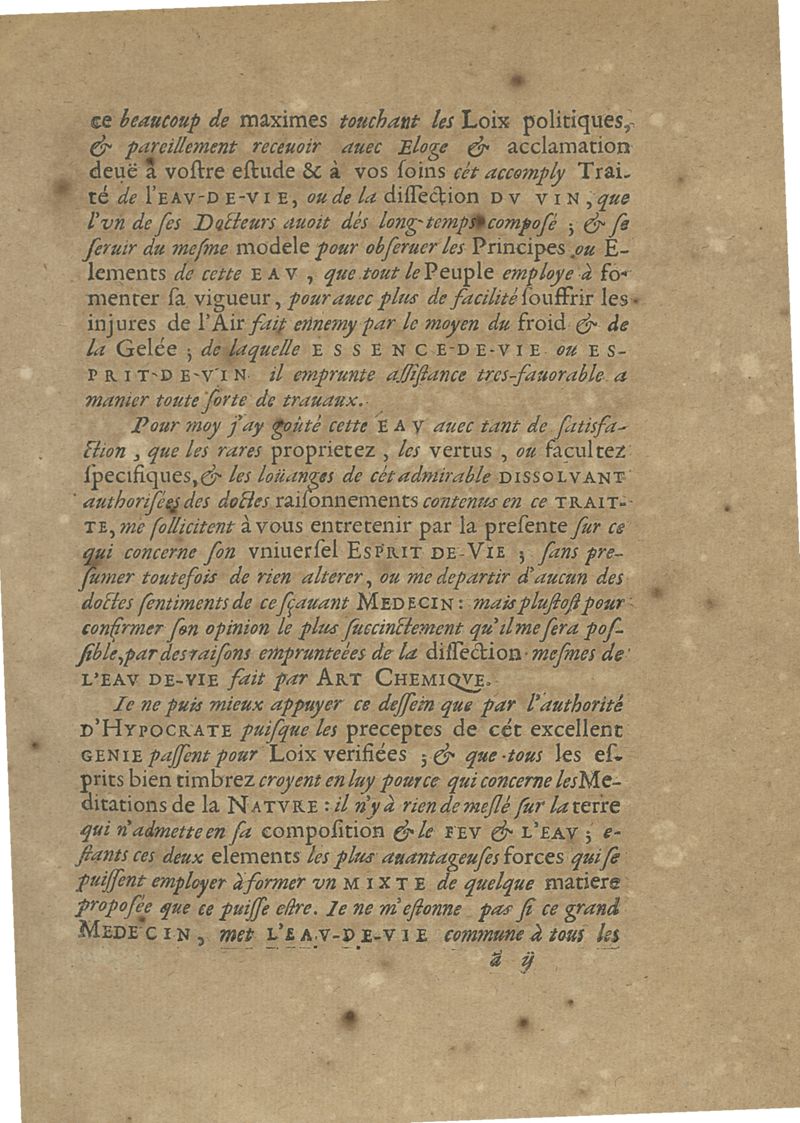 ce beaucoup de maximes touchant les Loix politiques,
& pareillement receuoir auec Eloge & acclamation
deuë à voſtre eſtude & à vos ſoins cét accomply Trai-
té de l'EAV-DE-VIE, ou de la diſſection DV VIN, que
l'vn de ſes Docteurs auoit dés long-temps compoſé ; & ſe
ſeruir du meſme modele pour obſeruer les Principes ou E-
lements de cette EAV, que tout le Peuple employe à fo-
menter ſa vigueur, pour auec plus de facilité ſouffrir les
injures de l'Air fait ennemy par le moyen du froid & de
la Gelée ; de laquelle ESSENCE-DE-VIE ou ES-
PRIT-DE-VIN il emprunte aſſiſtance tres-fauorable a
manier toute ſorte de trauaux.
Pour moy j'ay goûté cette EAV auec tant de ſatisfa-
ction, que les rares proprietez, les vertus, ou facultez
ſpecifiques, & les loüanges de cét admirable DISSOLVANT
authoriſées des doctes raiſonnements contenus en ce TRAIT-
TE, me ſollicitent à vous entretenir par la preſente ſur ce
qui concerne ſon vniuerſel ESPRIT DE-VIE ; ſans pre-
ſumer toutefois de rien alterer, ou me departir d'aucun des
doctes ſentiments de ce ſçauant MEDECIN: mais pluſtoſt pour
confirmer ſon opinion le plus ſuccinctement qu'il me ſera poſ-
ſible, par des raiſons emprunteées de la diſſection meſmes de
L'EAV DE-VIE fait par ART CHEMIQVE.
Ie ne puis mieux appuyer ce deſſein que par l'authorité
D'HYPOCRATE puiſque les preceptes de cét excellent
GENIE paſſent pour Loix verifiées ; & que tous les eſ-
prits bien timbrez croyent en luy pour ce qui concerne les Me-
ditations de la NATVRE : il n'y à rien de meſlé ſur la terre
qui n'admette en ſa compoſition & le FEV & L'EAV ; e-
ſtants ces deux elements les plus auantageuſes forces qui ſe
puiſſent employer à former vn MIXTE de quelque matiere
propoſée que ce puiſſe eſtre. Ie ne m'eſtonne pas ſi ce grand
MEDECIN, met L'EAV-DE-VIE commune à tous les
ã ij